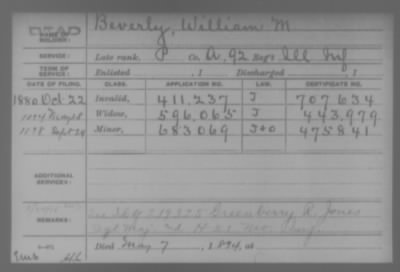 DEAD
NAME OF SOLDIER: Beverly, William M
SERVICE: Late rank, P Co. A, 92 Reg't Ill Inf
TERM OF SERVICE: Enlisted , 1 Discharged , 1
DATE OF FILING. CLASS. APPLICATION NO. LAW. CERTIFICATE NO.
1880 Oct 22 Invalid, 411,237 J 707634
1894 Widow, 596,065 J 443,979
1898 Sept 29 Minor, 683069 J+O 475841
ADDITIONAL SERVICES:
REMARKS: Greenberry R. Jones
H 21 Mo. Inf.
Died May 7 , 1894, at